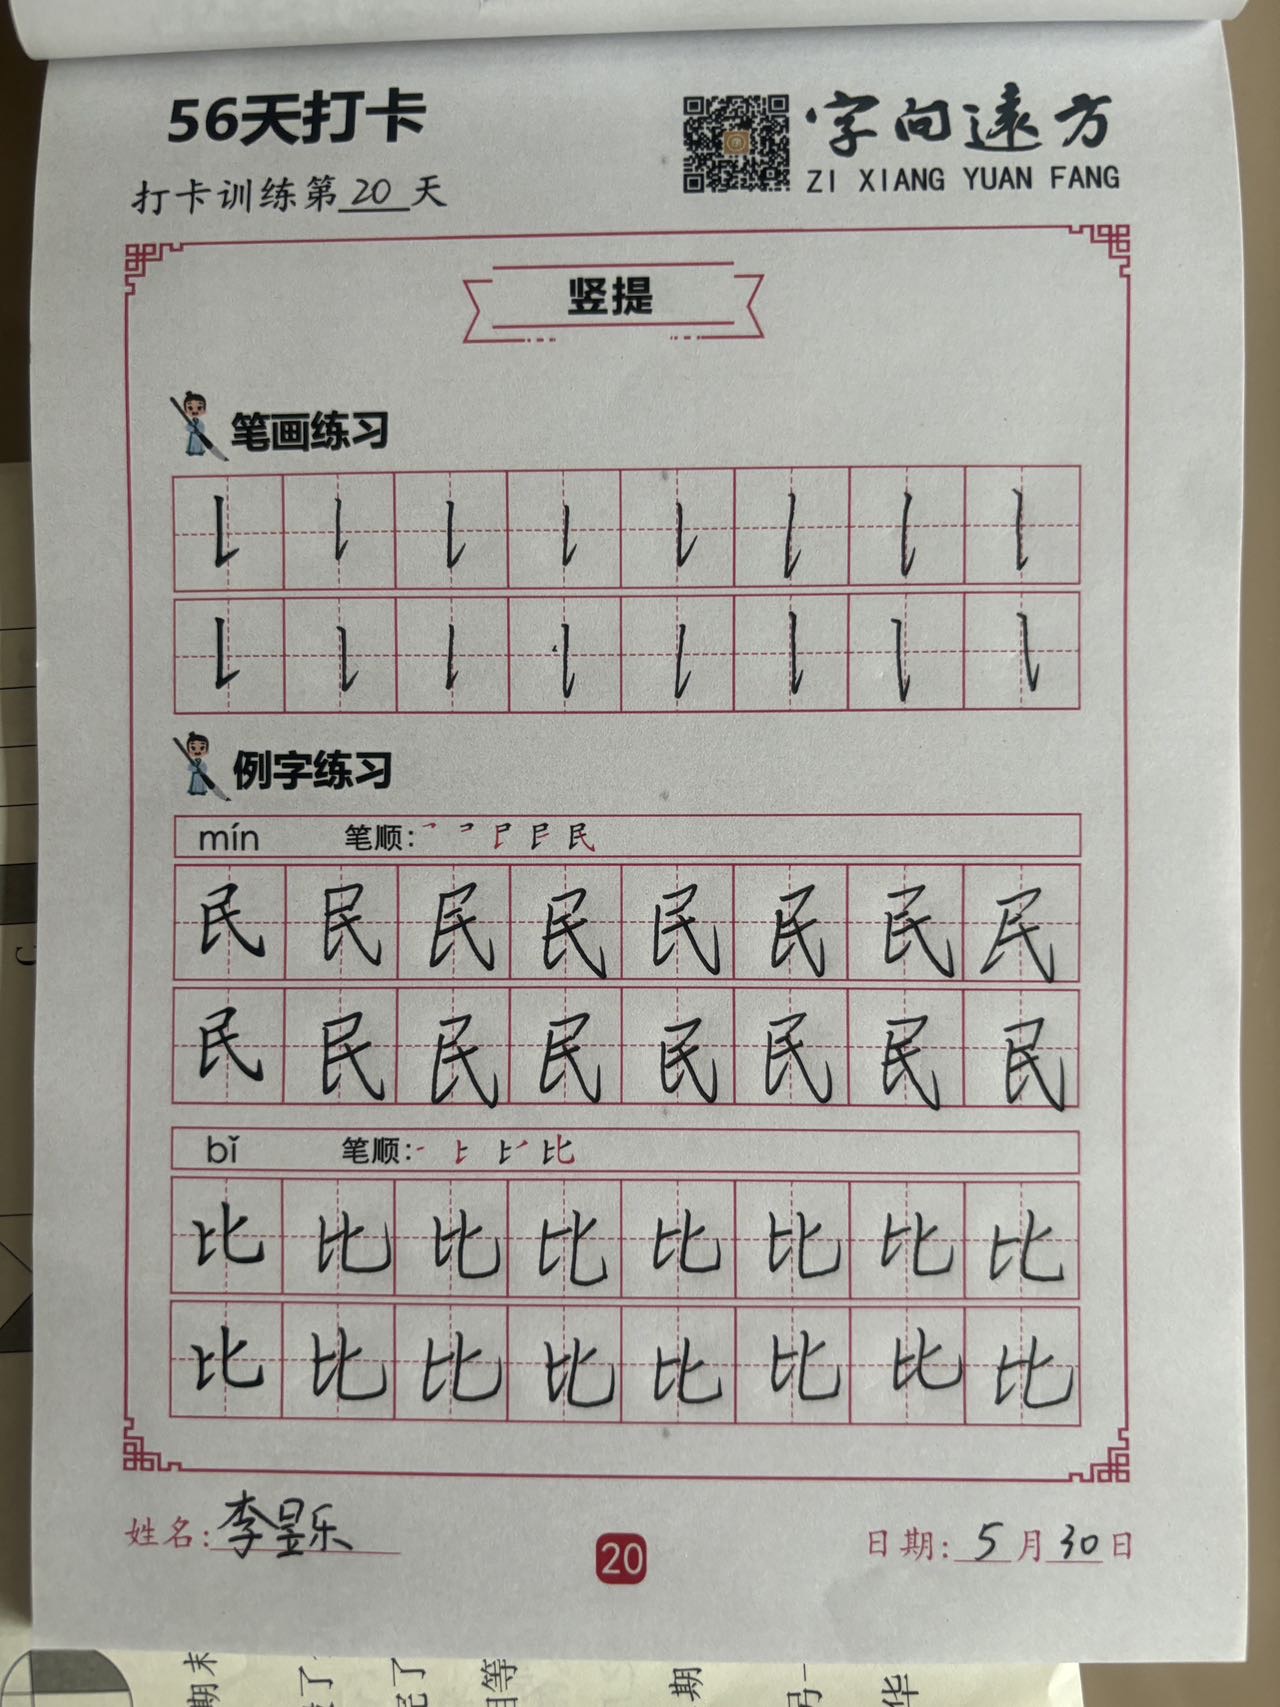 56天打卡
字向远方
ZI XIANG YUAN FANG
打卡训练第20天
竖提
笔画练习
例字练习
mín 笔顺：
民 民 民 民 民 民 民 民
民 民 民 民 民 民 民 民
bǐ 笔顺：
比 比 比 比 比 比 比 比
比 比 比 比 比 比 比 比
姓名：李昱乐
20
日期：5月30日
期末
了
期
华